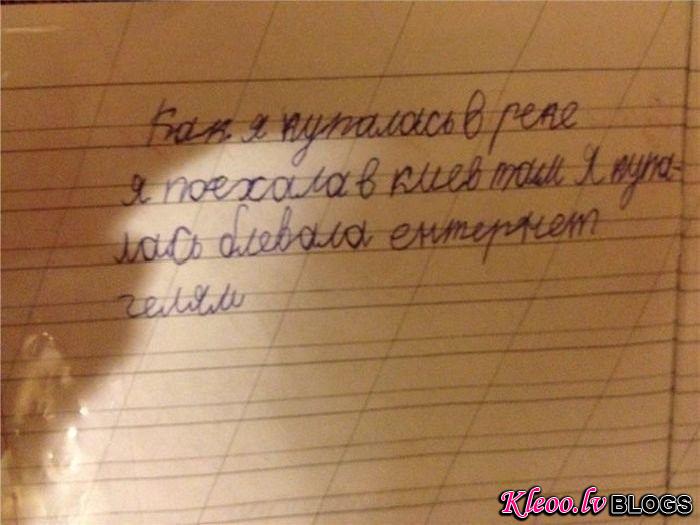 Как я купалась в реке
я поехала в киев там Я купа-
лась блевала ентернет
гелям
Kleoo.lv BLOGS